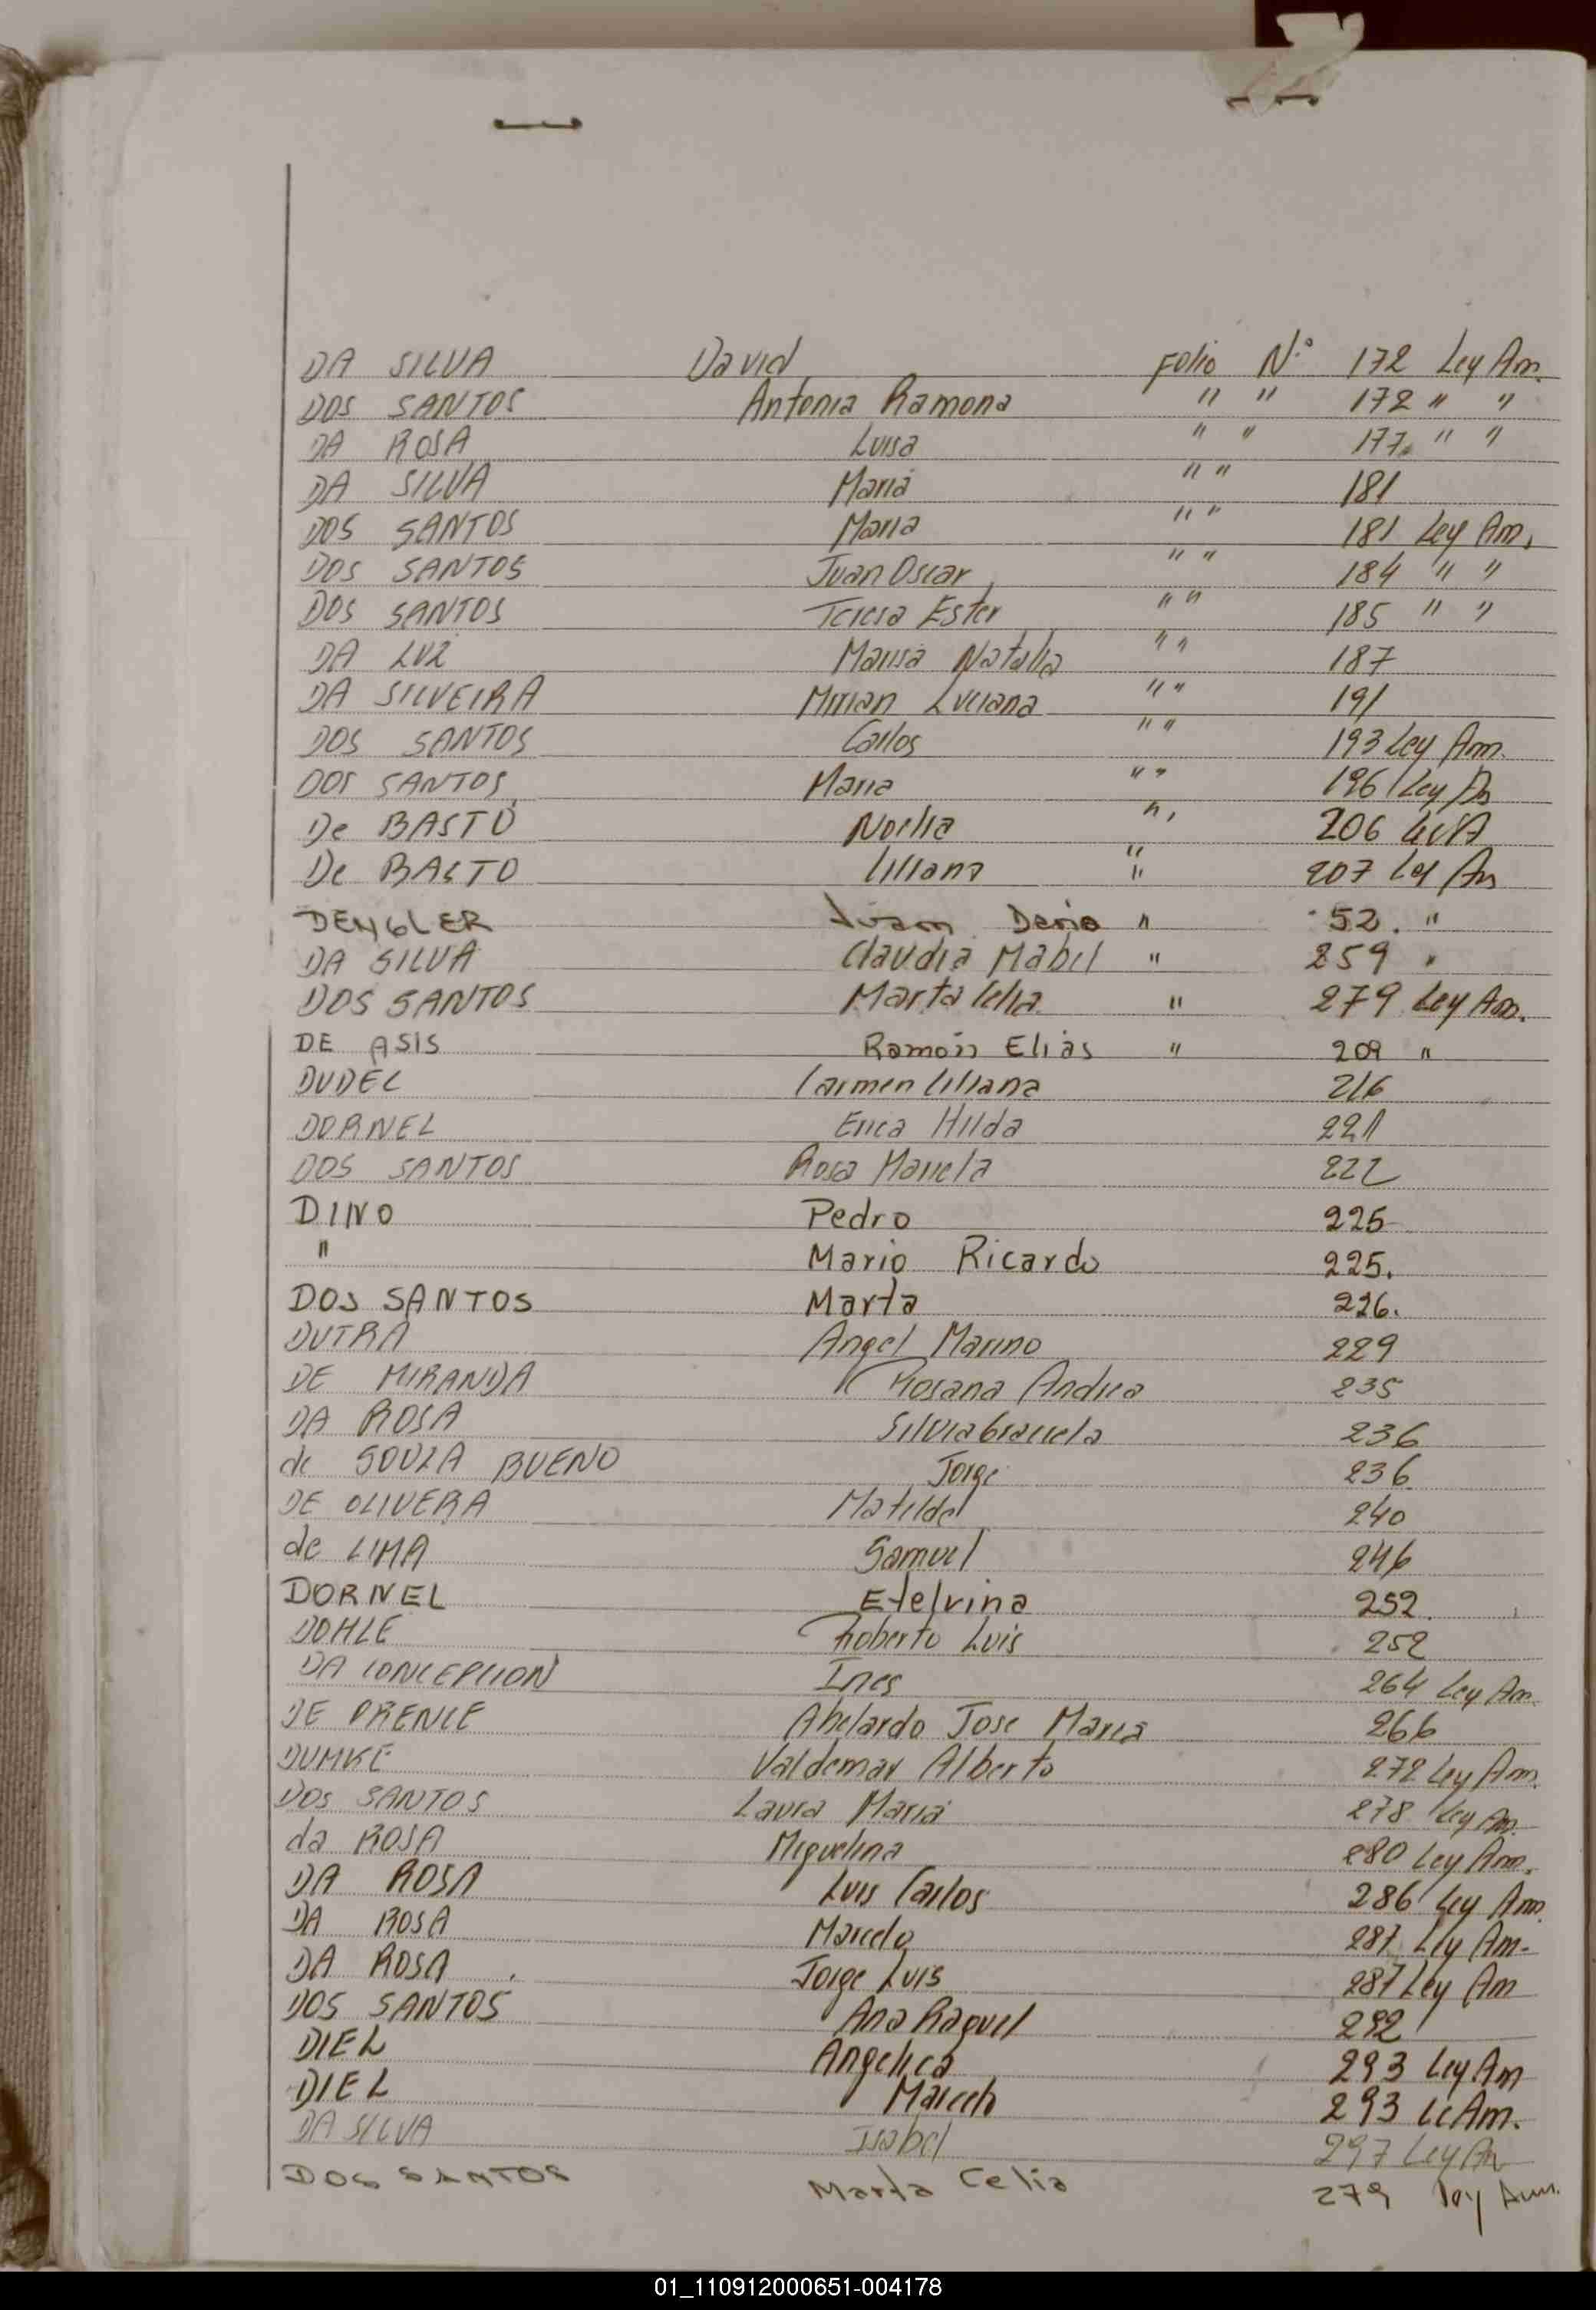 DA SILVA David Folio N.° 172 Ley Am.
DOS SANTOS Antonia Ramona " " 172 " "
DA ROSA Luisa " " 177. " "
DA SILVA Maria " " 181
DOS SANTOS Maria " " 181 Ley Am.
DOS SANTOS Juan Oscar " " 184 " "
DOS SANTOS Teresa Ester " " 185 " "
DA LUZ Natalia " " 187
DA SILVEIRA Mirian Luciana " " 191
DOS SANTOS Carlos " " 193 Ley Am.
DOS SANTOS Maria " " 196 Ley
De BASTO Noelia " 206
De BASTO Liliana " 207 Ley Am
DENGLER Dario " 52. "
DA SILVA Claudia Mabel " 259 "
DOS SANTOS Marta Celia " 279 Ley Am.
DE ASIS Ramón Elias " 209 "
DUDEL Carmen Liliana 216
DORNEL Erica Hilda 221
DOS SANTOS Rosa Mariela 222
DINO Pedro 225
" Mario Ricardo 225.
DOS SANTOS Marta 226.
DUTRA Angel Marino 229
DE MIRANDA Rosana Andrea 235
DA ROSA Silvia Graciela 236
de SOUZA BUENO Jorge 236
DE OLIVERA Matilde 240
de LIMA Samuel 246
DORNEL Etelvina 252.
DOHLE Roberto Luis 252
DA CONCEPCION Ines 264 Ley Am.
DE Abelardo Jose Maria 266
DUMKE Valdemar Alberto 272 Ley Am.
DOS SANTOS Laura Maria 278 Ley Am.
da ROSA Miguelina 280 Ley Am.
DA ROSA Luis Carlos 286 Ley Am.
DA ROSA Marcelo 287 Ley Am.
DA ROSA Jorge Luis 287 Ley Am
DOS SANTOS Ana Raquel 292
DIEL Angelica 293 Ley Am
DIEL Marcelo 293 Am.
DA SILVA Isabel 297 Ley Am
DOS SANTOS Marta Celia 279 ley Am.
01_110912000651-004178